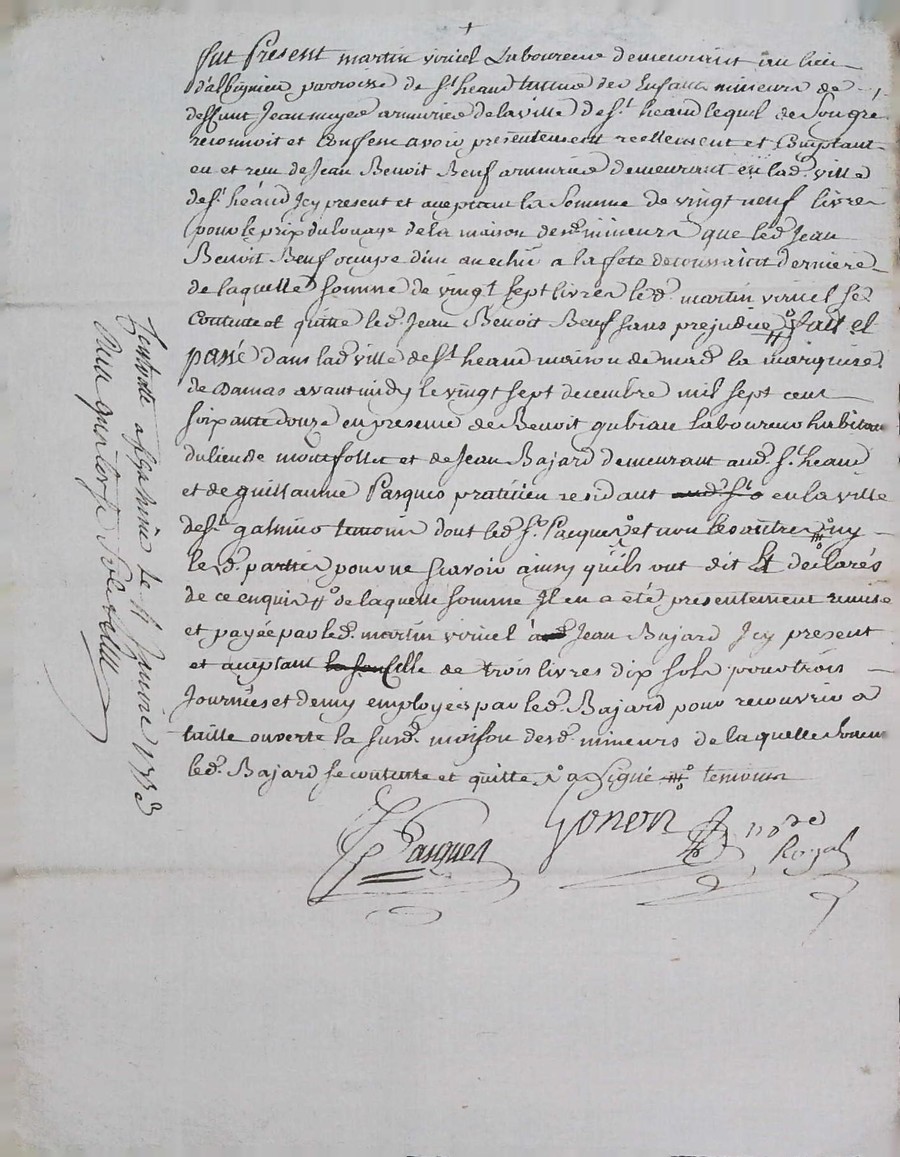 +
fut Present martin viricel Laboureur demeurant au lieu
d'albignieu parroisse de St. heand tuteur des Enfants mineurs de
deffunt Jean armurier de la ville de St. heand lequel de Son gré
reconnoit et confesse avoir presentement reellement et Comptant
eu et receu de Jean Benoit Beuf armurier demeurant en lad. ville
de St. héand Icy present et aceptant la Somme de vingt neuf livres
pour le prix du louage de la maison desd. mineurs que led. Jean
Benoit Beuf ocupe d'un an echu a la fete de toussaint derniere
de laquelle Somme de vingt sept livres led. martin viricel se
Contente et quitte led. Jean Benoit Beuf sans prejudice fait et
passé dans lad. ville de St. heand maison de mad. la marquise
de Damas avant midy le vingt sept decembre mil sept cent
soixante douze en presence de Benoit gubian laboureur habitant
du lieu de montfollet et de Jean Bajard demeurant aud. St. heand
et de guillaume Pasques praticien residant en la ville
de St. galmier temoins dont led. Sr. Pacques et non les autres ny
led. parties pour ne scavoir ainsy qu'ils ont dit et declarés
de ce enquis de laquelle somme Il en a été presentement remise
et payée par led. martin viricel à Jean Bajard Icy present
et aceptant celle de trois livres dix sols pour trois
Journées et demy employées par led. Bajard pour recouvrir a
taille ouverte la susd. maison desd. mineurs de laquelle somme
led. Bajard se contente et quitte a Signé temoins
Pasques
Gonon
nore
Royal
Controlle a le Janvier 1773
Reçu quatorze sols